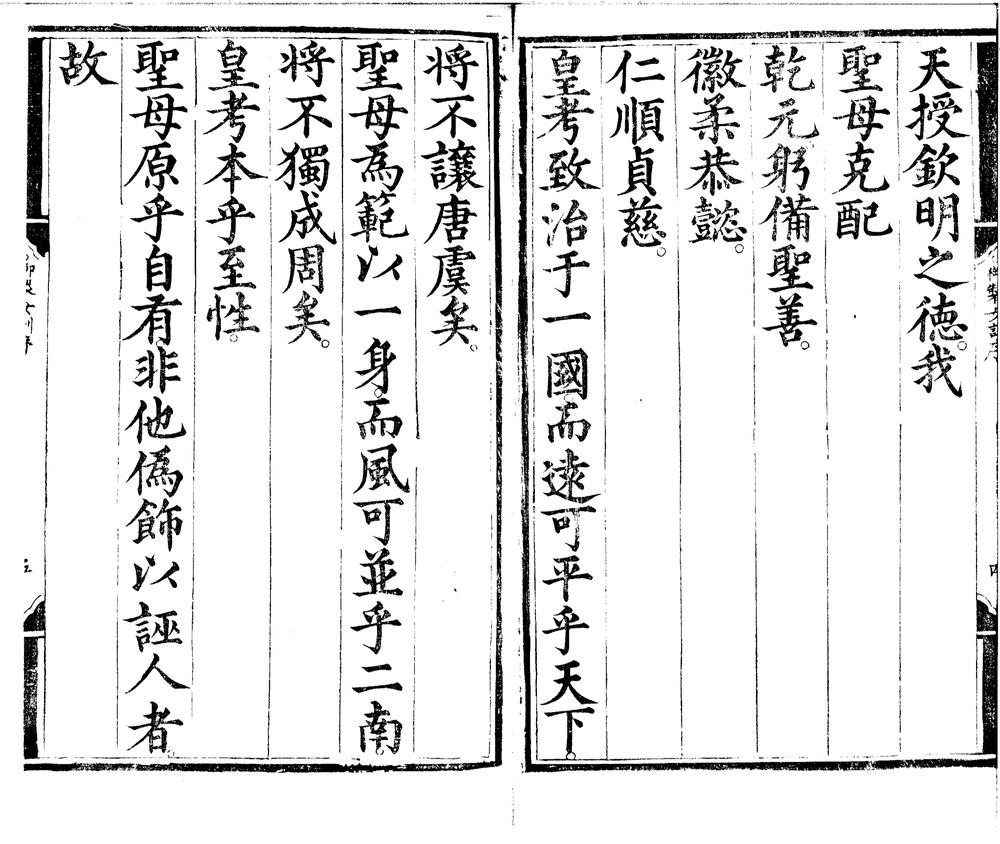 天授欽明之德。我
聖母克配
乾元躬備聖善。
徽柔恭懿。
仁順貞慈。
皇考致治于一國。而遠可平乎天下。
将不讓唐虞矣。
聖母為範以一身。而風可並乎二南。
将不獨成周矣。
皇考本乎至性。
聖母原乎自有。非他僞飾以誣人者。
故